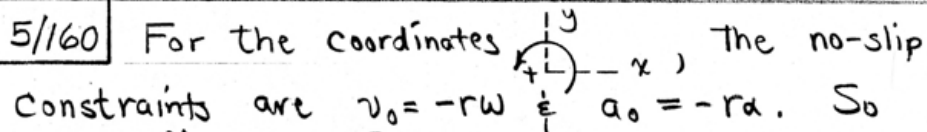 5/160 For the coordinates + x y, the no-slip
constraints are v₀ = -rω & a₀ = -rα. So